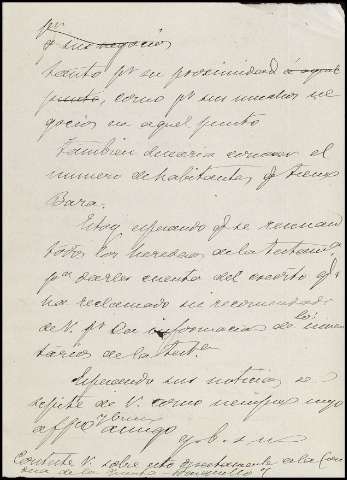 pr
q sus negocios
tanto pr su proximidad á aquel
punto, como pr sus muchos ne
gocios en aquel punto
tambien desearia conocer el
numero de habitantes q tiene
Bara.
Estoy esperando q se reunan
todos los herederos de la testamª,
pª darles cuenta del escrito q
ha reclamado su recomendado
de V. pr la informacion de los inven
tarios de la test
Esperando sus noticias se
repite de V. como siempre suyo
affmo y buen amigo
q. b. s. m.
Conteste V. sobre esto directamente a la